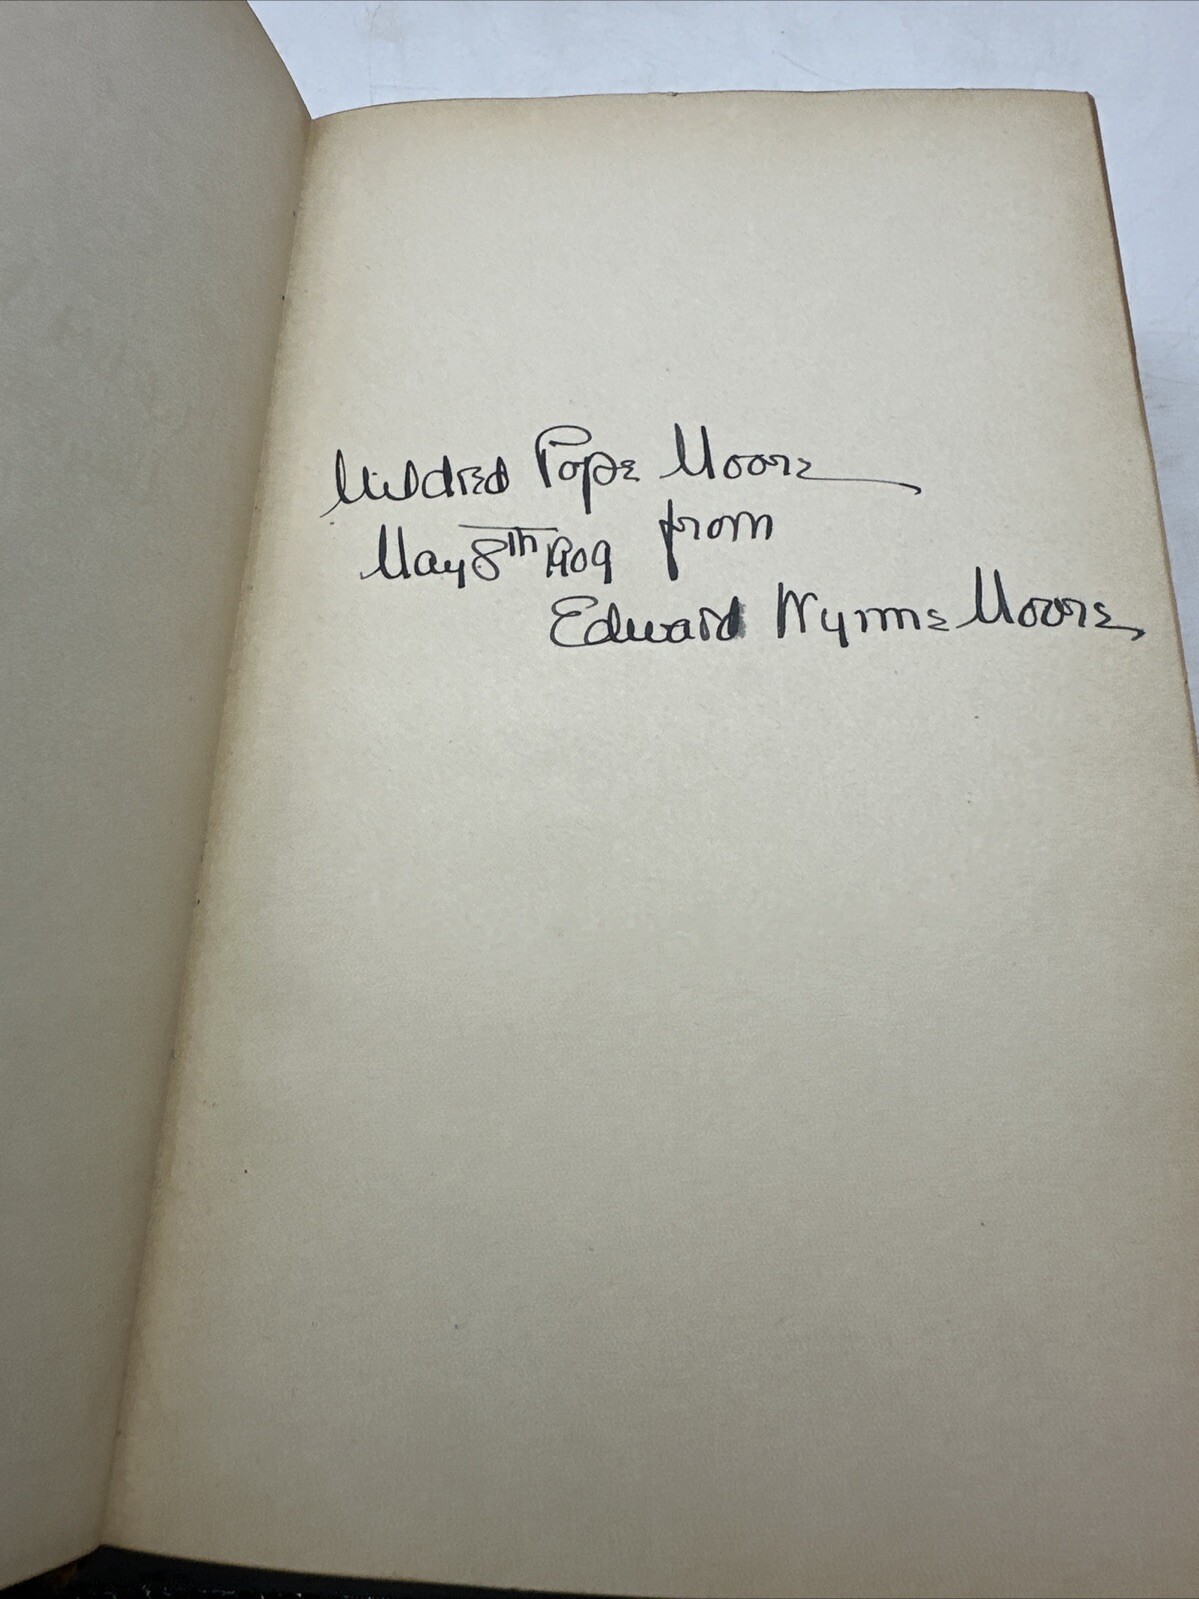 Mildred Pope Moore
May 8th 1909 from
Edward Wynne Moore